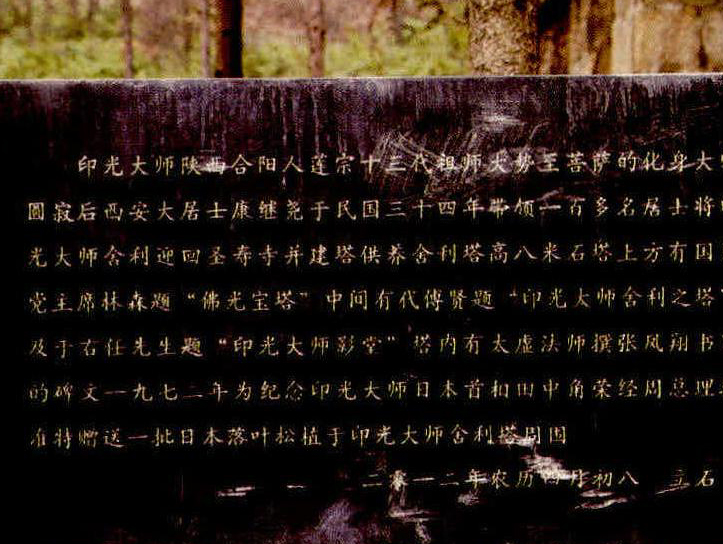 印光大师陕西合阳人莲宗十三代祖师大势至菩萨的化身大
圆寂后西安大居士康继尧于民国三十四年带领一百多名居士将
光大师舍利迎回圣寿寺并建塔供养舍利塔高八米石塔上方有国
党主席林森题“佛光宝塔”中间有代传贤题“印光大师舍利之塔
及于右任先生题“印光大师影堂”塔内有太虚法师撰张凤翔书
的碑文一九七二年为纪念印光大师日本首相田中角荣经周总理
准特赠送一批日本落叶松植于印光大师舍利塔周围
二零一二年农历四月初八 立石